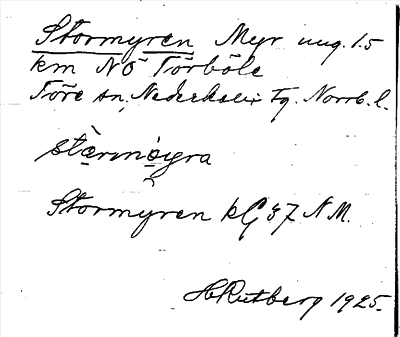 Stormyren Myr ung. 1.5
km NÖ Törböle
Töre sn. Nederkalix Tg. Norrb. l.
stòrmỳra
Stormyren kG 37 N M.
H Rutberg 1925.